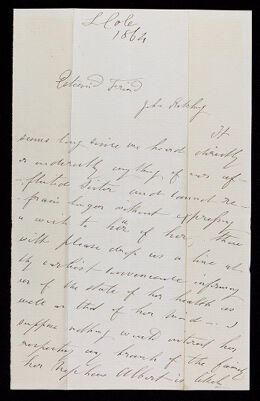 L Cole
1864
Esteem'd Friend
John Ketcham
It
seems long since we heard directly
or indirectly any thing of our af-
flicted Sister and I cannot re-
frain longer without expressing
a wish to hear of her, thou
will please drop us a line at
thy earliest convenience, informing
us of the state of her health as
well as that of her mind - I
suppose nothing would interest her
respecting any branch of the family
her Nephew Albert is